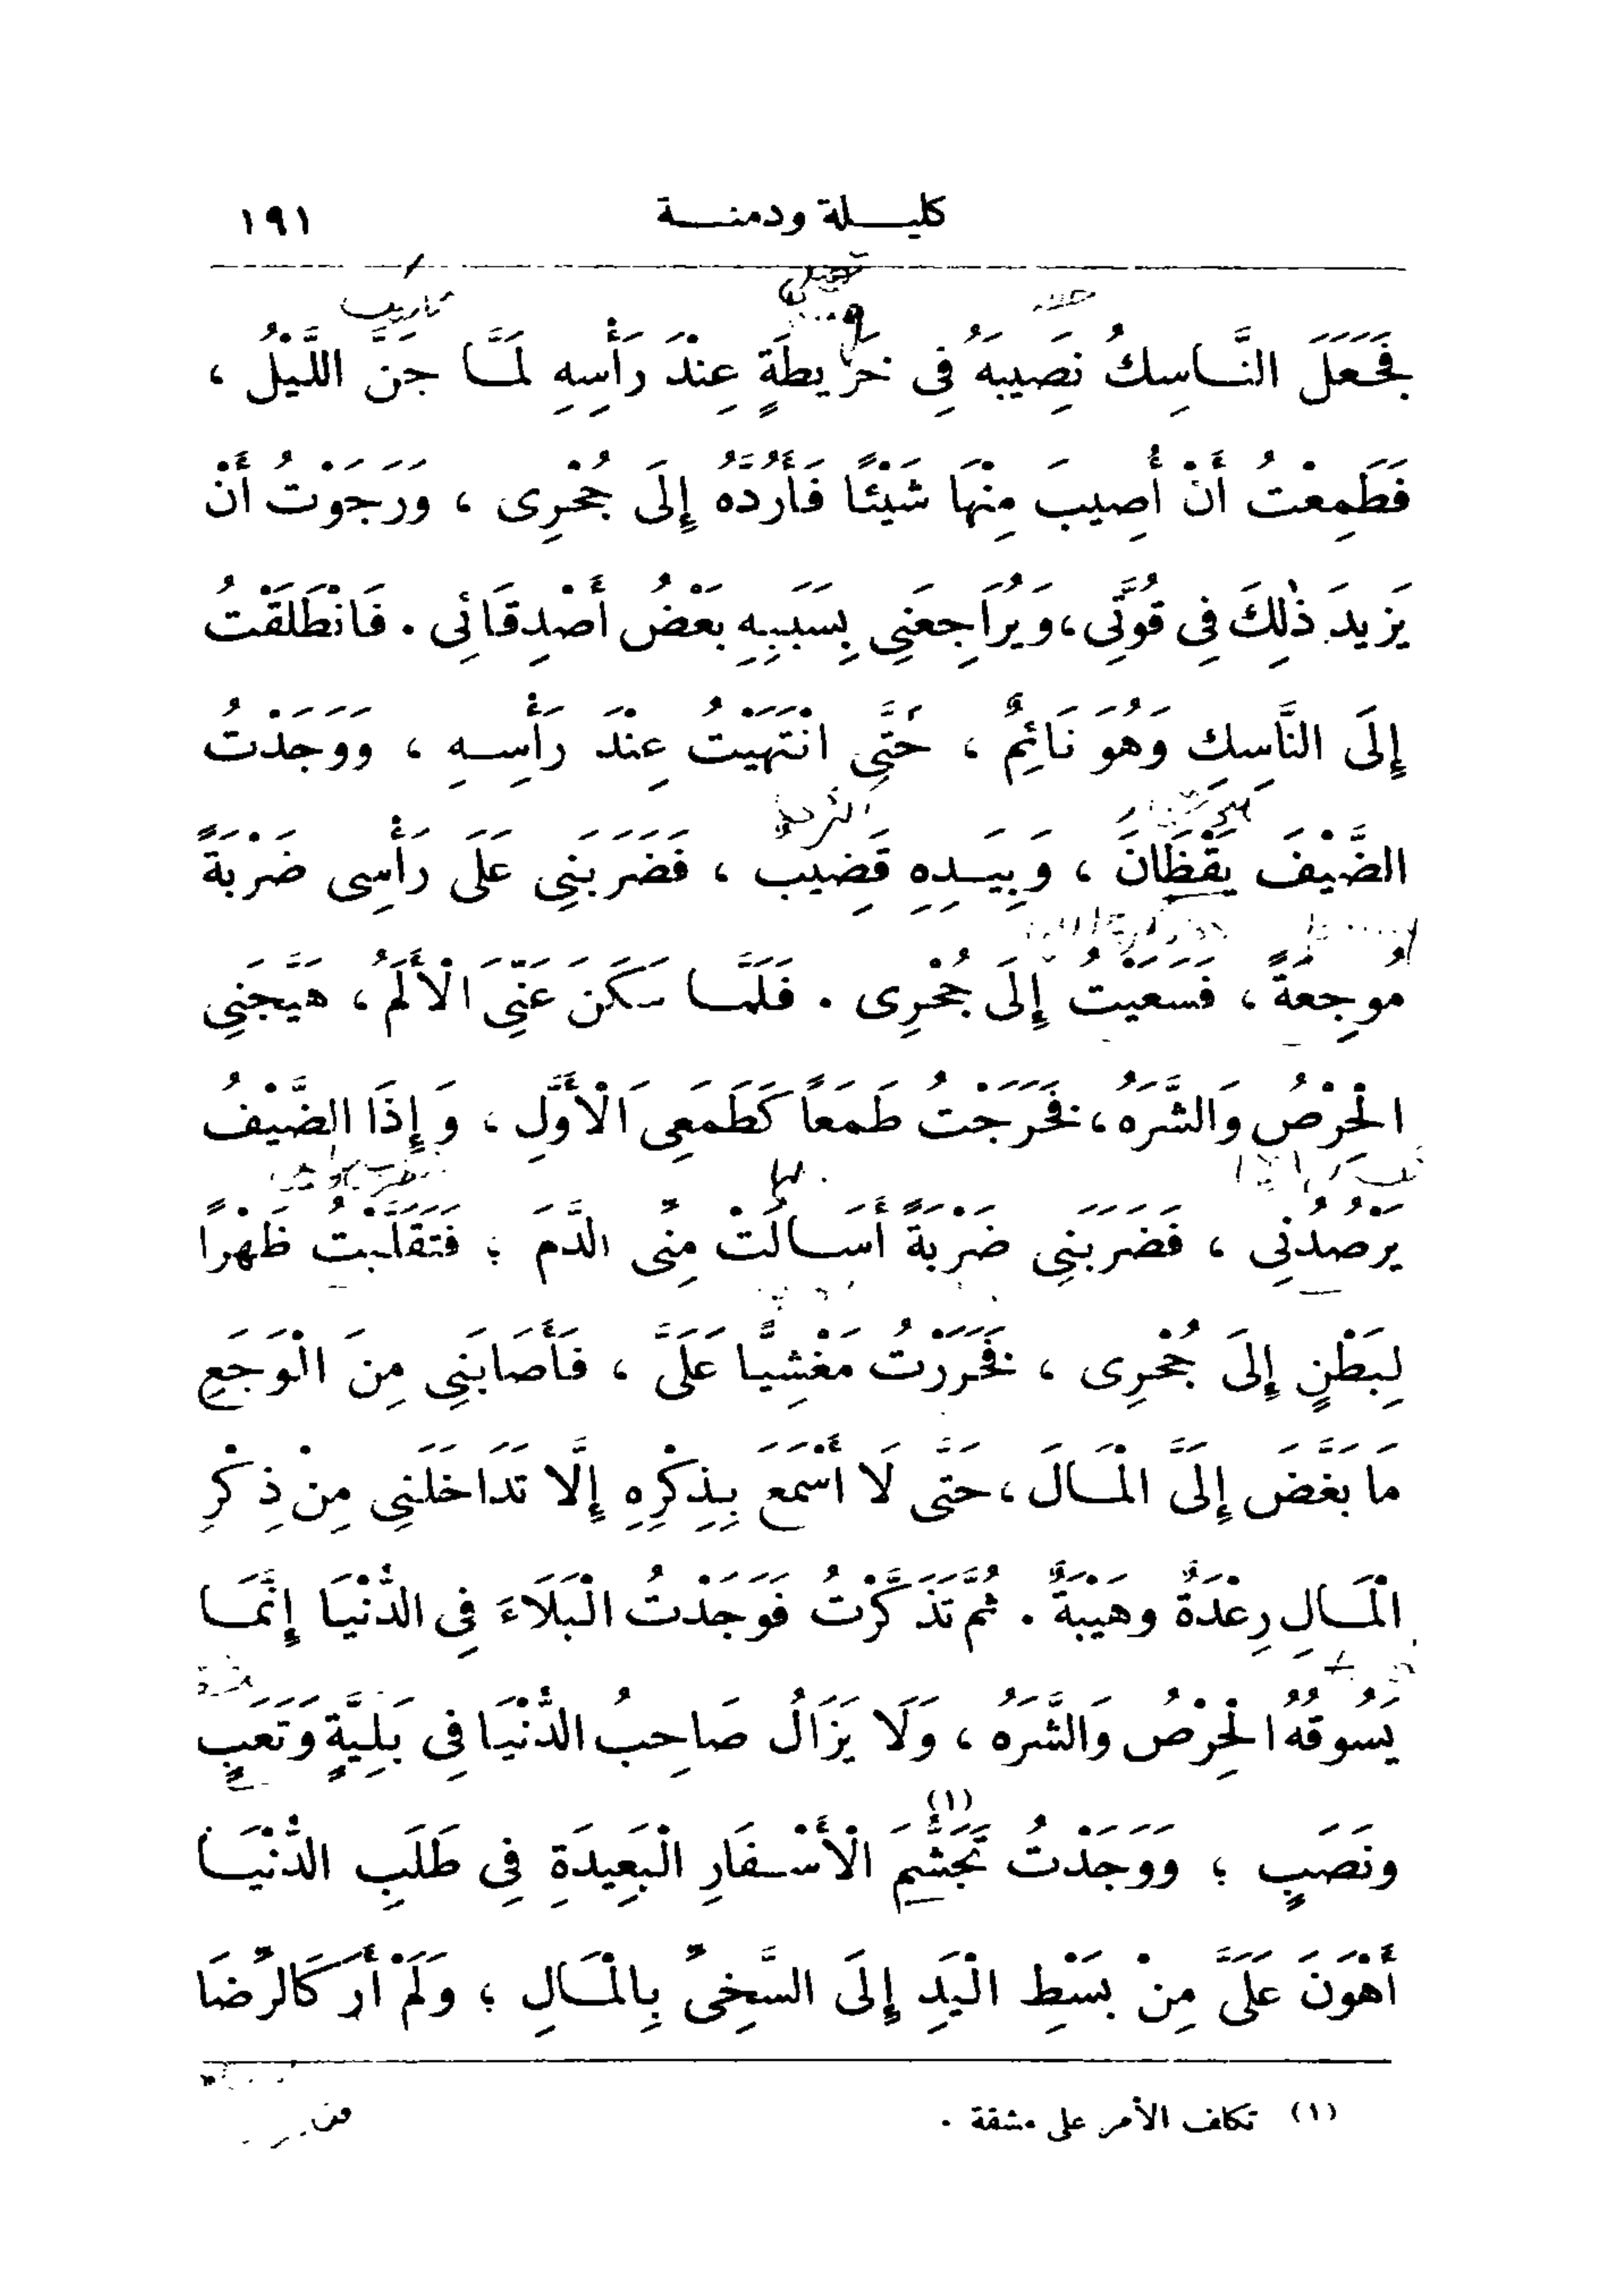 كليلة ودمنة
١٩١
فَجَعَلَ النَّاسِكُ نَصِيبَهُ فِى خَرِيطَةٍ عِنْدَ رَأْسِهِ لَمَّا جَنَّ اللَّيْلُ ،
فَطَمِعْتُ أَنْ أُصِيبَ مِنْهَا شَيْئًا فَأَرُدَّهُ إِلَى جُحْرِى ، وَرَجَوْتُ أَنْ
يَزِيدَ ذٰلِكَ فِى قُوَّتِى، وَيُرَاجِعَنِى بِسَبَبِهِ بَعْضُ أَصْدِقَائِى . فَانْطَلَقْتُ
إِلَى النَّاسِكِ وَهُوَ نَائِمٌ ، حَتَّى انْتَهَيْتُ عِنْدَ رَأْسِهِ ، وَوَجَدْتُ
الضَّيْفَ يَقْظَانَ ، وَبِيَدِهِ قَضِيب ، فَضَرَبَنِى عَلَى رَأْسِى ضَرْبَةً
مُوجِعَةً ، فَسَعَيْتُ إِلَى جُحْرِى . فَلَمَّا سَكَنَ عَنِّىَ الْأَلَمُ ، هَيَّجَنِى
الْحِرْصُ وَالشَّرَهُ ، فَخَرَجْتُ طَمَعًا كَطَمَعِى الْأَوَّلِ ، وَإِذَا الضَّيْفُ
يَرْصُدُنِى ، فَضَرَبَنِى ضَرْبَةً أَسَالَتْ مِنِّى الدَّمَ ؛ فَتَقَلَّبْتُ ظَهْرًا
لِبَطْنٍ إِلَى جُحْرِى ، فَخَرَرْتُ مَغْشِيًّا عَلَىَّ ، فَأَصَابَنِى مِنَ الْوَجَعِ
مَا بَغَّضَ إِلَىَّ الْمَالَ ، حَتَّى لَا أَسْمَعَ بِذِكْرِهِ إِلَّا تَدَاخَلَنِى مِنْ ذِكْرِ
الْمَالِ رِعْدَةٌ وهَيْبَةٌ . ثُمَّ تَذَكَّرْتُ فَوَجَدْتُ الْبَلَاءَ فِى الدُّنْيَا إِنَّمَا
يَسُوقُهُ الْحِرْصُ وَالشَّرَهُ ، وَلَا يَزَالُ صَاحِبُ الدُّنْيَا فِى بَلِيَّةٍ وَتَعَبٍ
ونَصَبٍ ؛ وَوَجَدْتُ تَجَشُّمَ (١) الْأَسْفَارِ الْبَعِيدَةِ فِى طَلَبِ الدُّنْيَا
أَهْوَنَ عَلَىَّ مِنْ بَسْطِ الْيَدِ إِلَى السَّخِىِّ بِالْمَالِ ؛ وَلَمْ أَرَ كَالرِّضَا
(١) تكلف الأمر على مشقة .